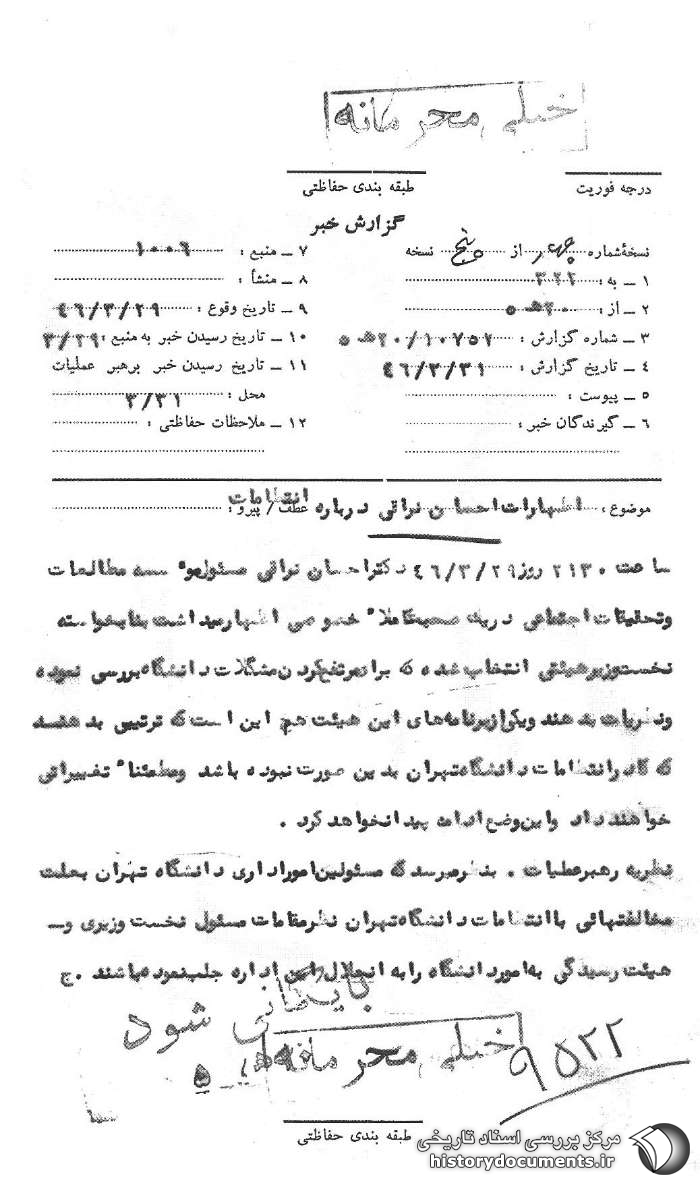 خیلی محرمانه
درجه فوریت
طبقه بندی حفاظتی
گزارش خبر
نسخهٔ شماره چهار از پنج نسخه
۱ ــ به : ۳۲۲
۲ ــ از : ۲۰ هـ ۵
۳ ــ شماره گزارش : ۲۰/۱۰۷۵۲ هـ ۵
۴ ــ تاریخ گزارش : ۴۶/۳/۳۱
۵ ــ پیوست :
۶ ــ گیرندگان خبر :
۷ ــ منبع : ۱۰۰۶
۸ ــ منشأ :
۹ ــ تاریخ وقوع : ۴۶/۳/۲۹
۱۰ ــ تاریخ رسیدن خبر به منبع : ۳/۲۹
۱۱ ــ تاریخ رسیدن خبر برهبر عملیات
محل : ۳/۳۱
۱۲ ــ ملاحظات حفاظتی :
موضوع : اظهارات احسان نراقی درباره انتظامات
عطف / پیرو :
ساعت ۲۱۳۰ روز ۴۶/۳/۲۹ دکتر احسان نراقی مسئول موسسه مطالعات
وتحقیقات اجتماعی در یک صحبت کاملا" خصوصی اظهار میداشت بنا بخواسته
نخست وزیر هیئتی انتخاب شده که برای مرتفع کردن مشکلات دانشگاه بررسی نموده
ونظریات بدهند ویکی از برنامه‌های این هیئت هم این است که ترتیبی بدهند
که کادر انتظامات دانشگاه تهران بدین صورت نبوده باشد ومطمئنا" تغییراتی
خواهند داد واین وضع ادامه پیدا نخواهد کرد .
نظریه رهبر عملیات . بنظر میرسد که مسئولین امور اداری دانشگاه تهران بعلت
مخالفتهائی با انتظامات دانشگاه تهران نظر مقامات مسئول نخست وزیری و ــ
هیئت رسیدگی به امور دانشگاه را به انحلال این اداره جلب نموده باشند . ج
بایگانی شود
خیلی محرمانه
۹۵۲۲
طبقه بندی حفاظتی
مرکز بررسی اسناد تاریخی
historydocuments.ir